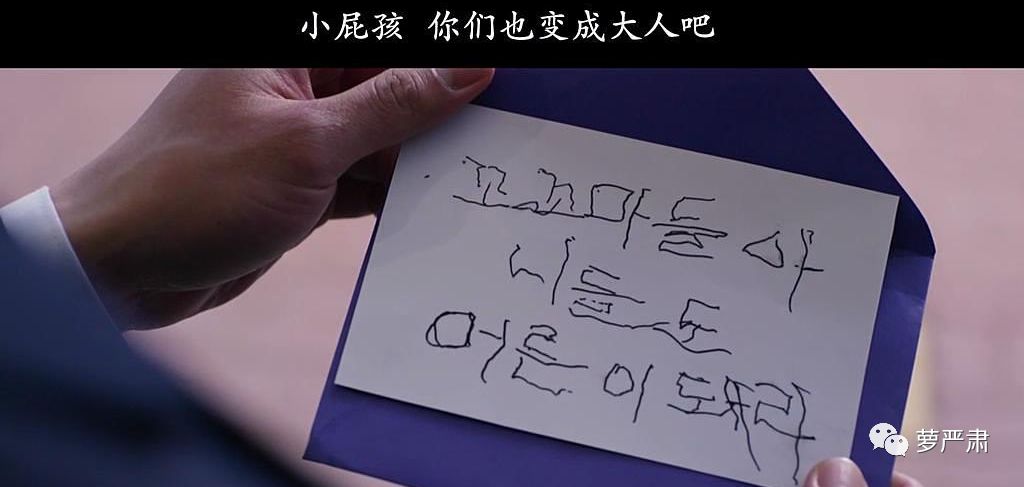 小屁孩 你们也变成大人吧
꼬꼬마들아
니들도
어른이 돼라
萝严肃